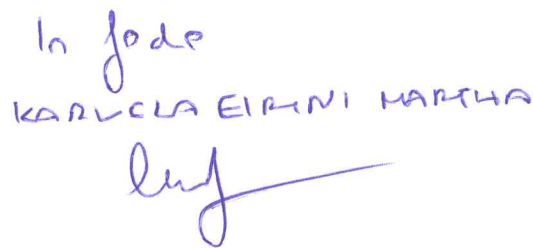 In fede
KARVELA EIRHNI MARTHA